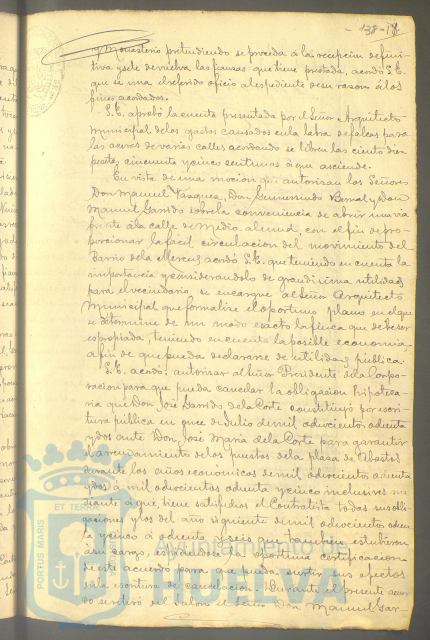 138-18
Monasterio pretendiendo se proceda á la recepción defini-
tiva y se le devuelva las fianzas que tiene prestada, acordó S.E.
que se una el referido oficio al espediente de su razón á los
fines acordados.
S.E. aprobó la cuenta presentada por el Señor Arquitecto
Municipal de los gastos causados en la labra de falcas para
las aceras de varias calles acordando se libren las ciento diez
pesetas, cincuenta y cinco sentimos á que asciende.
En vista de una mocion que autorizan los Señores
Don Manuel Vazquez, Don Gumersindo Bernal y Don
Manuel Garrido sobre la conveniencia de abrir una via
frente á la calle de Medio almud, con el fin de pro-
porcionar la facil circulacion del movimiento del
Barrio de la Merced, acordó S.E. que teniendo en cuenta la
importancia y considerandolo de grandisima utilidad
para el vecindario se encargue al Señor Arquitecto
Municipal que formalice el oportuno plano en el que
se determine de un modo esacto la finca que debe ser
espropiada, teniendo en cuenta la posible economia
á fin de que pueda declararse de utilidad pública.
S.E. acordó: autorizar al Señor Presidente de la Corpo-
racion para que pueda cancelar la obligacion hipoteca-
ria que Don José Garrido de la Corte constituyó por escri-
tura pública en once de Julio de mil ochocientos ochenta
y dos ante Don José Maria de la Corte para garantir
el arrendamiento de los puestos de la plaza de Abastos
durante los años economicos de mil ochocientos ochenta
y dos á mil ochocientos ochenta y cinco inclusives me-
diante á que tiene satisfechos el Contratista todas sus obli-
gaciones y los del año siguiente de mil ochocientos ochen-
ta y cinco á ochenta y seis que tambien estuvieron
á su cargo, espidiendose la oportuna certificacion
de este acuerdo para que pueda surtir sus efectos
en la escritura de cancelacion. Durante el presente acuer-
do se retiró del salon el Señor Don Manuel Gar-
PORTUS MARIS
ET TERRÆ
Ayuntamiento de
HUELVA